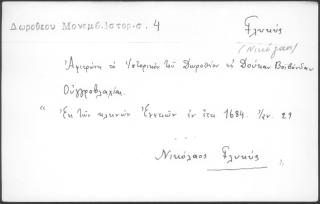 Δωροθεου Μονεμβ.Ιστορ.σ. 4
Γλυκύς
(Νικόλαος)
Ἀφιερώνει τὸ Ἱστορικὸν τοῦ Δωροθέου εἰς Δούκαν Βοϊβόνδαν
Οὐγγροβλαχίας.
"Ἐκ τῶν κλεινῶν Ἑνετιῶν ἐν ἔτει 1684. 29
Νικόλαος Γλυκύς